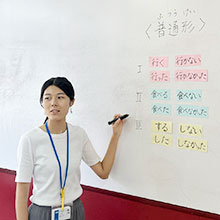 ふつうけい
〈普通形〉
Ⅰ 行く 行かない
行った 行かなかった
Ⅱ 食べる 食べない
食べた 食べなかった
Ⅲ する しない
した しなかった